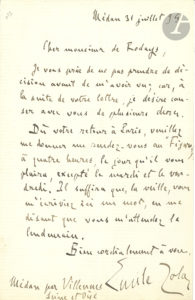 Médan 31 juillet 9
Cher monsieur de Rodays,
Je vous prie de ne pas prendre de dé-
cision avant de m'avoir vu; car, à
la suite de votre lettre, je désire cau-
ser avec vous de plusieurs choses.
Dès votre retour à Paris, veuillez
me donner un rendez-vous au Figaro,
à quatre heures, le jour qu'il vous
plaira, excepté le mardi et le ven-
dredi. Il suffira que, la veille, vous
m'écriviez ici un mot, en me
disant que vous m'attendez le
lendemain.
Bien cordialement à vous.
Émile Zola
Médan par Villennes
Seine et Oise